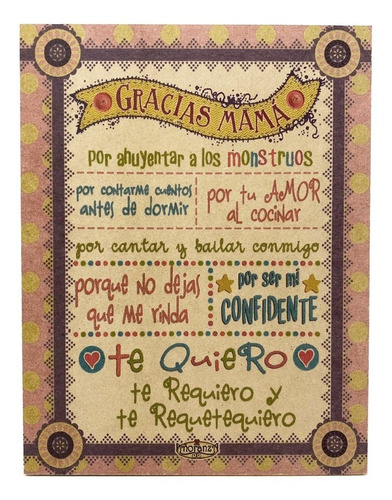 GRACIAS MAMÁ
por ahuyentar a los monstruos
por contarme cuentos
antes de dormir
por tu AMOR
al cocinar
por cantar y bailar conmigo
porque no dejas
que me rinda
por ser mi
CONFIDENTE
te QuieRo
te Requiero y
te Requetequiero